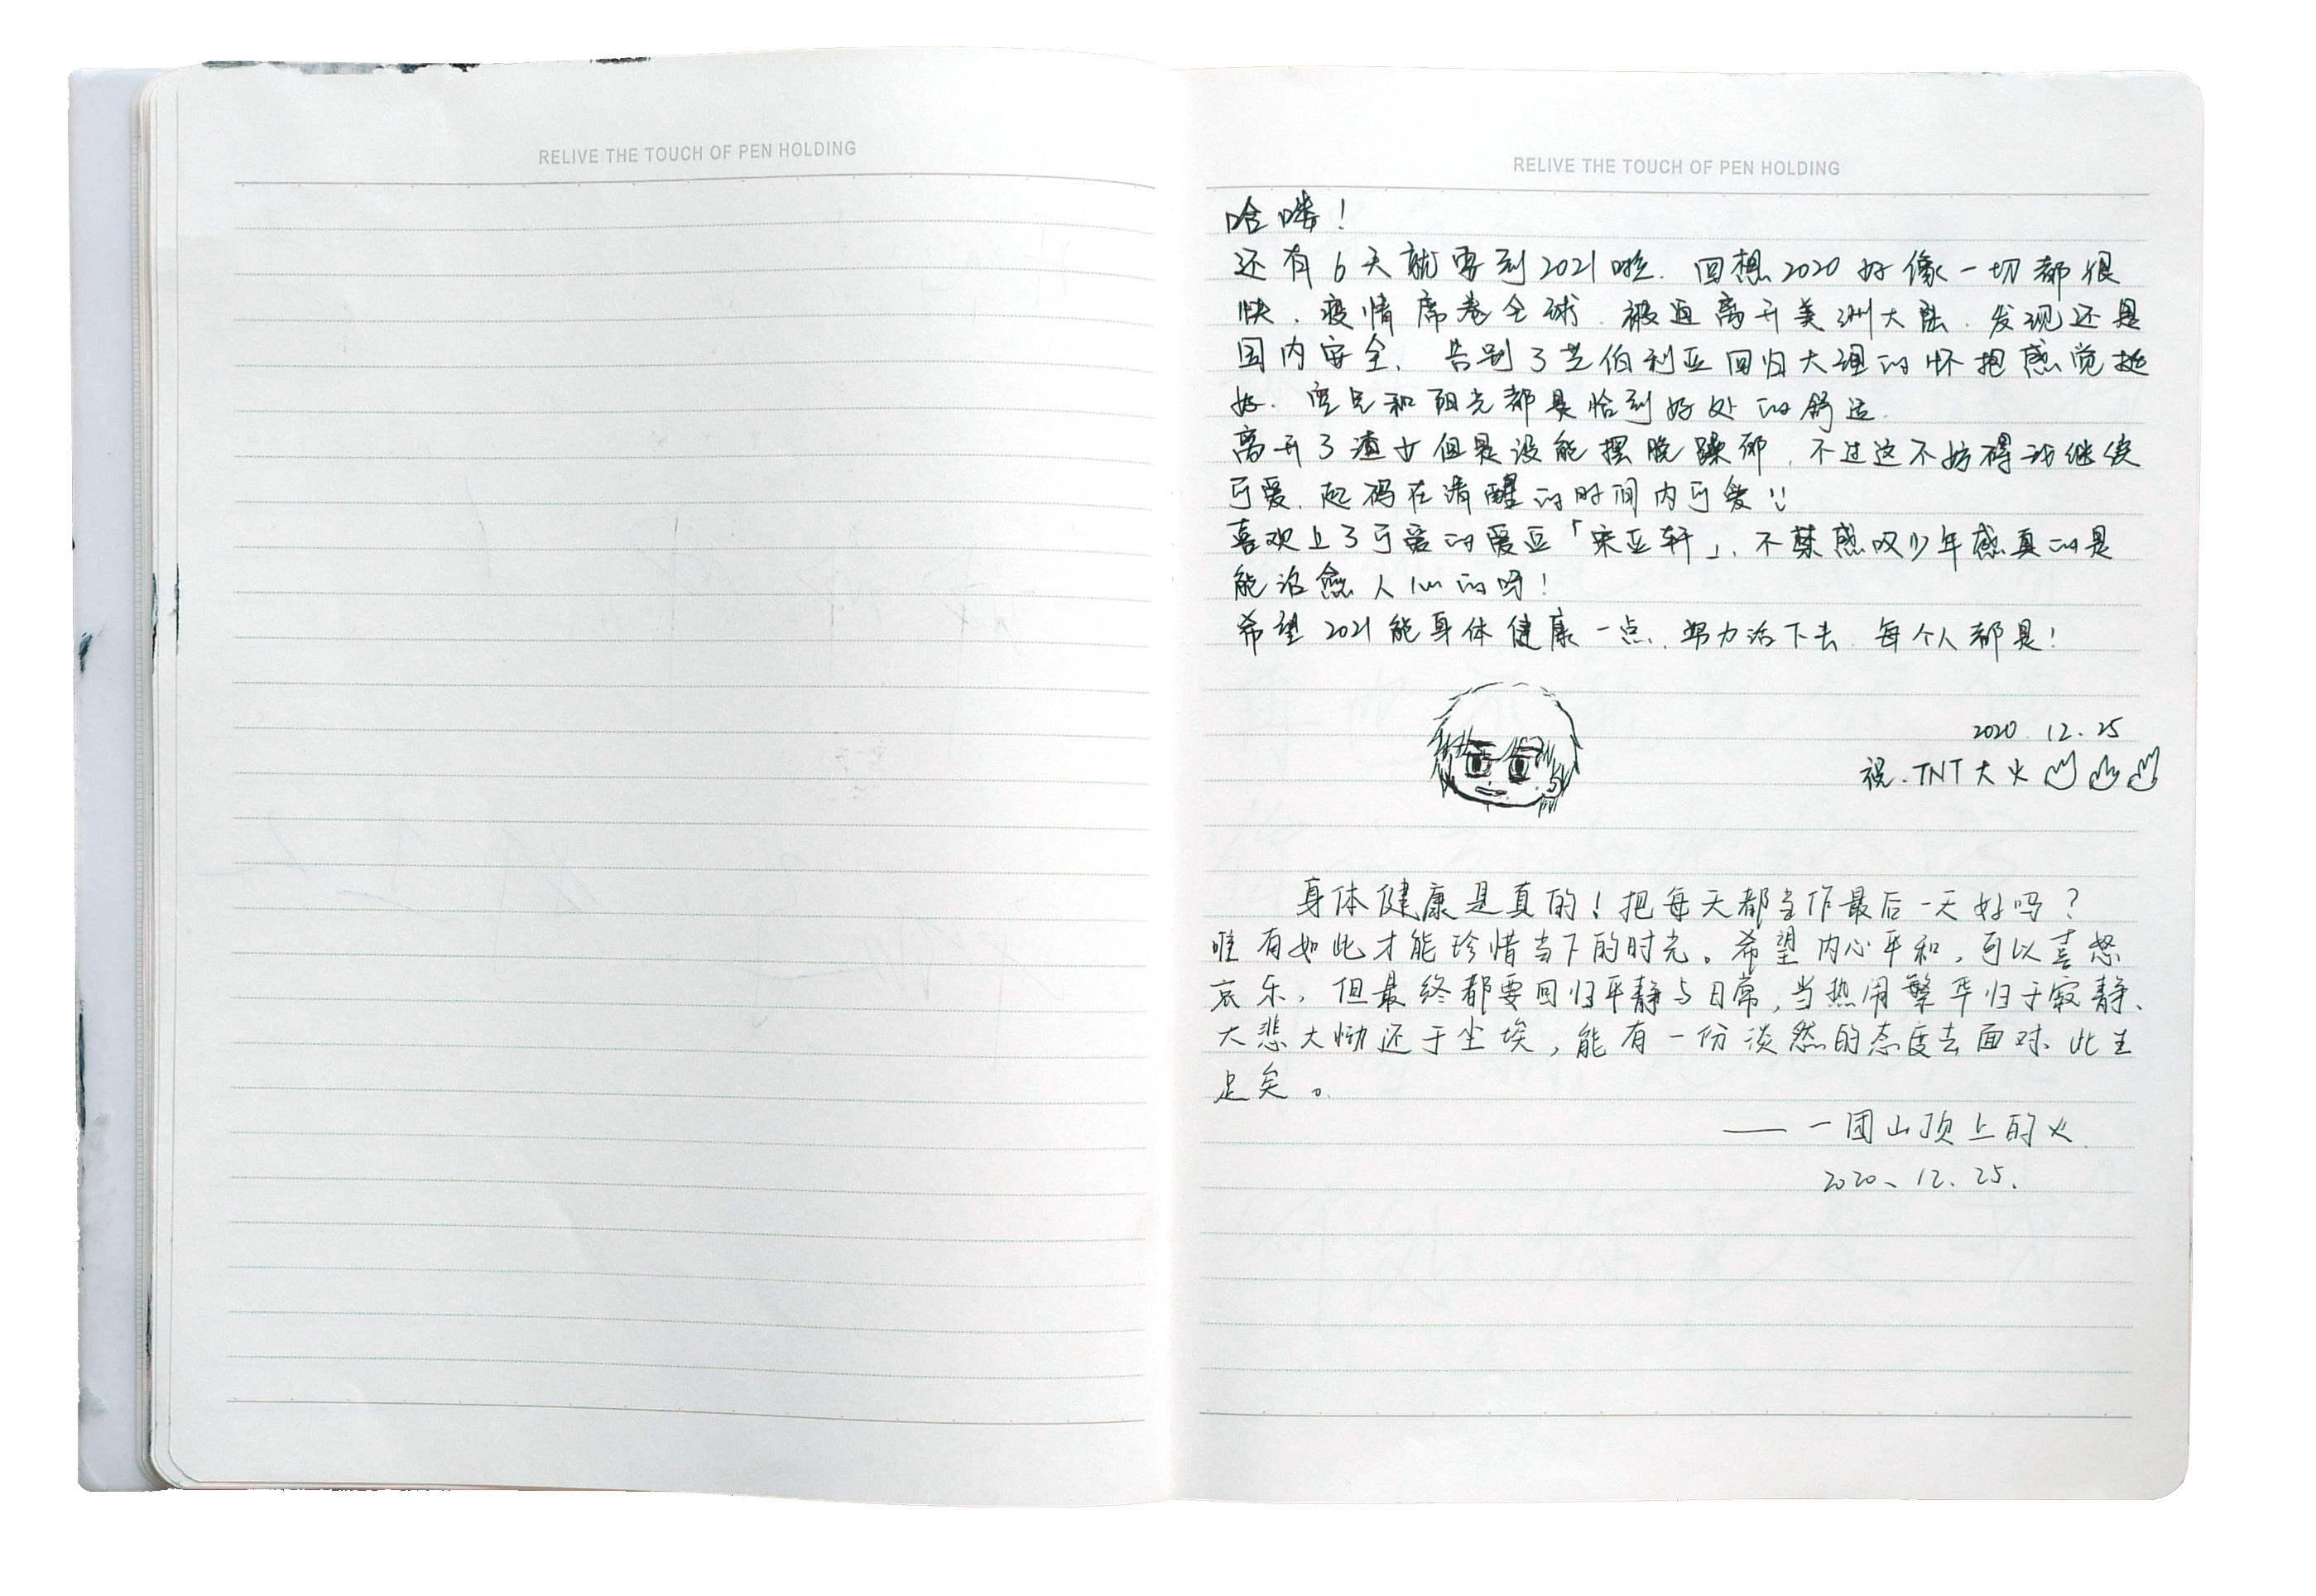 RELIVE THE TOUCH OF PEN HOLDING
RELIVE THE TOUCH OF PEN HOLDING
哈喽！
还有6天就要到2021啦. 回想2020好像一切都很
快. 疫情席卷全球. 被迫离开美洲大陆. 发现还是
国内安全. 告别了芝伯利亚回归大理的怀抱感觉挺
好. 空气和阳光都是恰到好处的舒适.
离开了渣女但是没能摆脱躁郁. 不过这不妨碍我继续
可爱. 起码在清醒的时间内可爱!!
喜欢上了可爱的爱豆「宋亚轩」. 不禁感叹少年感真的是
能治愈人心的呀!
希望2021能身体健康一点. 努力活下去. 每个人都是!
2020. 12. 25
祝.TNT大火
身体健康是真的！把每天都当作最后一天好吗？
唯有如此才能珍惜当下的时光。希望内心平和，可以喜怒
哀乐，但最终都要回归平静与日常，当热闹繁华归于寂静、
大悲大恸还于尘埃，能有一份淡然的态度去面对、此生
足矣。
—— 一团山顶上的火.
2020、12. 25.